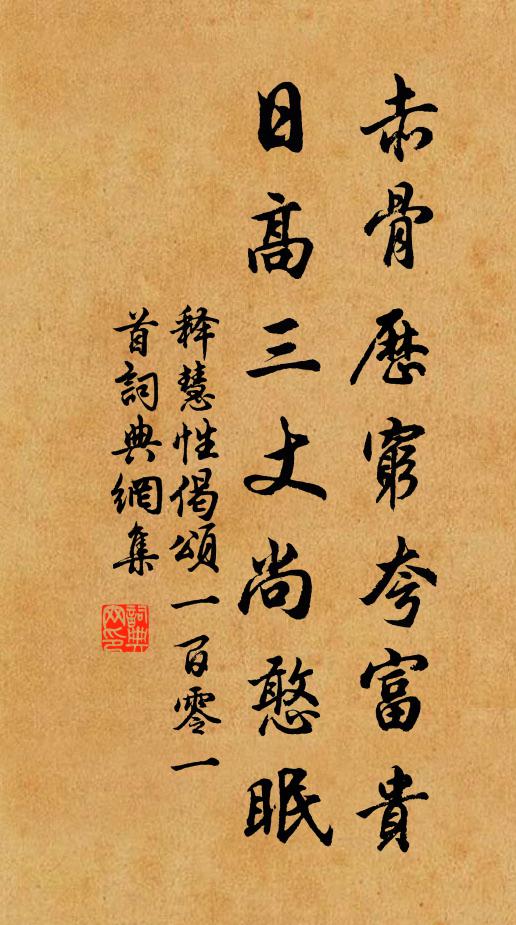 赤骨歷窮夸富貴
日高三丈尚憨眠
释慧性偈頌一百零一
首詞典網集
詞典网印